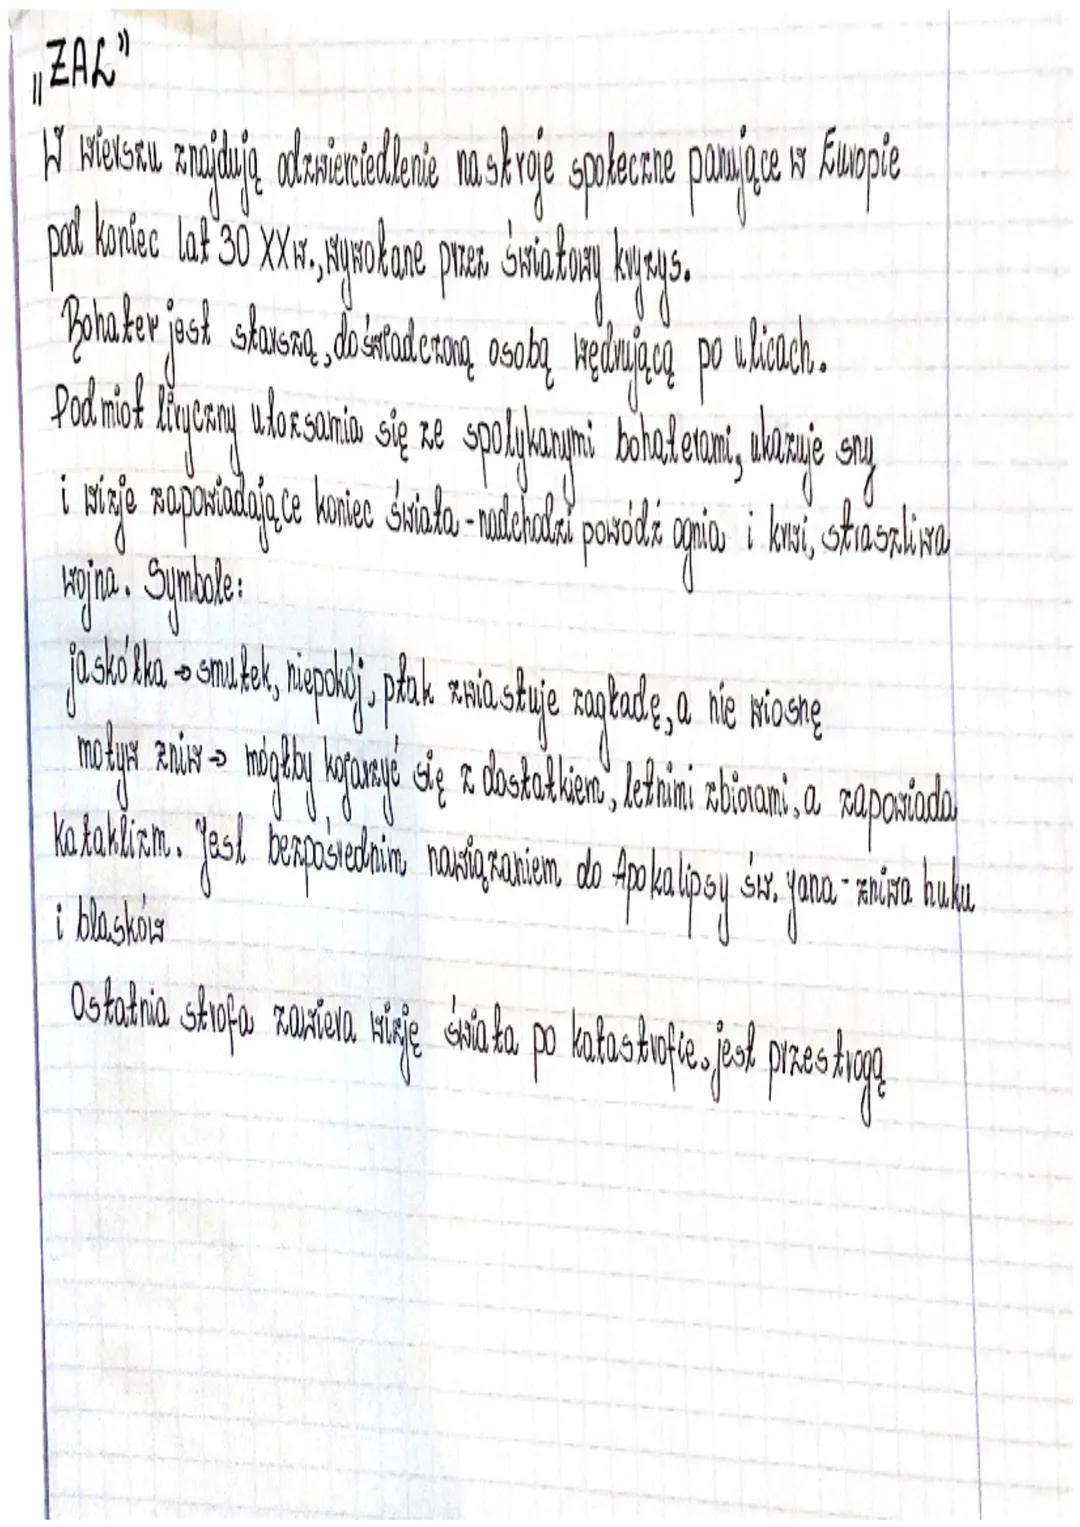 „ŻAL”
W wierszu znajdują odzwierciedlenie nastroje społeczne panujące w Europie
pod koniec lat 30 XXw., wywołane przez światowy kryzys.
Bohater jest starszą, doświadczoną osobą wędrującą po ulicach.
Podmiot liryczny utożsamia się ze spotykanymi bohaterami, ukazuje sny
i wizje zapowiadające koniec świata - nadchodzi powódź ognia i krwi, straszliwa
wojna. Symbole:
jaskółka → smutek, niepokój, ptak zwiastuje zagładę, a nie wiosnę
motyw żniw → mógłby kojarzyć się z dostatkiem, letnimi zbiorami, a zapowiada
kataklizm. Jest bezpośrednim nawiązaniem do Apokalipsy św. Jana - żniwa huku
i blasków
Ostatnia strofa zawiera wizję świata po katastrofie, jest przestrogą